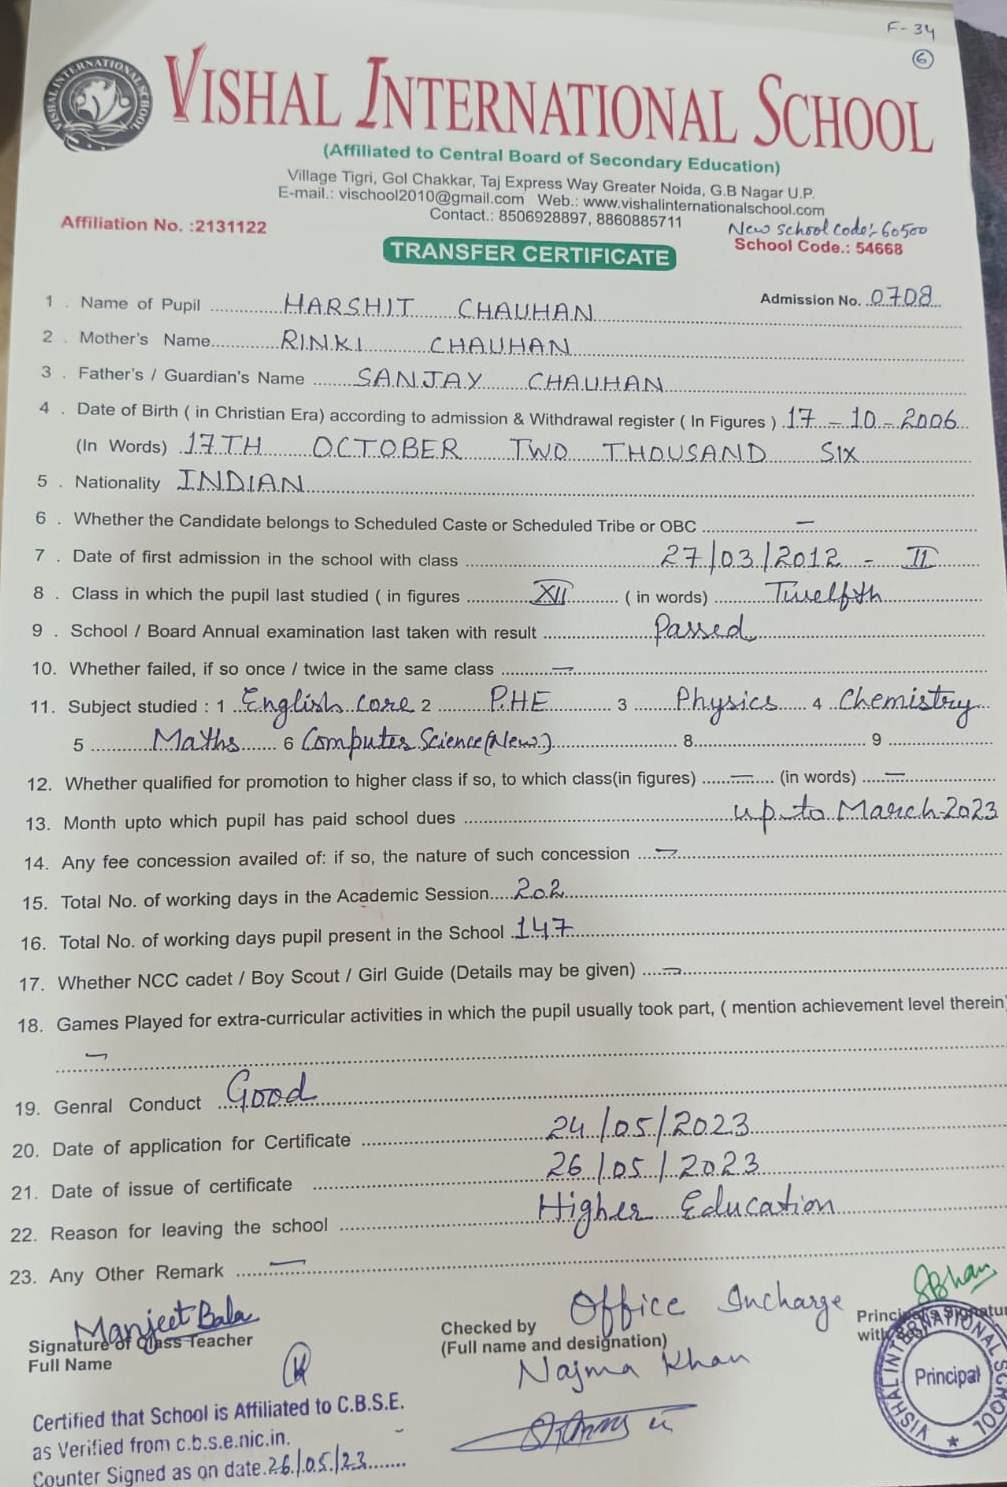 F-34
6
VISHAL INTERNATIONAL SCHOOL
VISHAL INTERNATIONAL SCHOOL
(Affiliated to Central Board of Secondary Education)
Village Tigri, Gol Chakkar, Taj Express Way Greater Noida, G.B Nagar U.P.
E-mail.: vischool2010@gmail.com Web.: www.vishalinternationalschool.com
Contact.: 8506928897, 8860885711
New School Code:- 60500
Affiliation No. :2131122
School Code.: 54668
TRANSFER CERTIFICATE
Admission No. 0708
1 . Name of Pupil HARSHIT CHAUHAN
2 . Mother's Name RINKI CHAUHAN
3 . Father's / Guardian's Name SANJAY CHAUHAN
4 . Date of Birth ( in Christian Era) according to admission & Withdrawal register ( In Figures ) 17 - 10 - 2006
(In Words) 17TH OCTOBER TWO THOUSAND SIX
5 . Nationality INDIAN
6 . Whether the Candidate belongs to Scheduled Caste or Scheduled Tribe or OBC —
7 . Date of first admission in the school with class 27/03/2012 - II
8 . Class in which the pupil last studied ( in figures XII ( in words) Twelfth
9 . School / Board Annual examination last taken with result Passed
10. Whether failed, if so once / twice in the same class —
11. Subject studied : 1 English Core 2 P.HE 3 Physics 4 Chemistry
5 Maths 6 Computer Science(New) 8 9
12. Whether qualified for promotion to higher class if so, to which class(in figures) — (in words) —
13. Month upto which pupil has paid school dues up to March-2023
14. Any fee concession availed of: if so, the nature of such concession —
15. Total No. of working days in the Academic Session 202
16. Total No. of working days pupil present in the School 147
17. Whether NCC cadet / Boy Scout / Girl Guide (Details may be given) —
18. Games Played for extra-curricular activities in which the pupil usually took part, ( mention achievement level therein)
—
19. Genral Conduct Good
20. Date of application for Certificate 24/05/2023
21. Date of issue of certificate 26/05/2023
22. Reason for leaving the school Higher Education
23. Any Other Remark —
Manjeet Bala
Signature of Class Teacher
Full Name
Office Incharge
Checked by
(Full name and designation)
Najma Khan
Principal's Signature
with Seal
VISHAL INTERNATIONAL SCHOOL
Principal
Certified that School is Affiliated to C.B.S.E.
as Verified from c.b.s.e.nic.in.
Counter Signed as on date 26/05/23